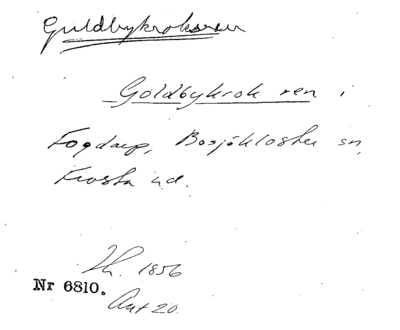 Guldbykroksren
Goldbykrok ren i
Fogdarp, Bosjökloster sn,
Frosta hd.
Lh. 1856
Nr 6810.
Ant 20.